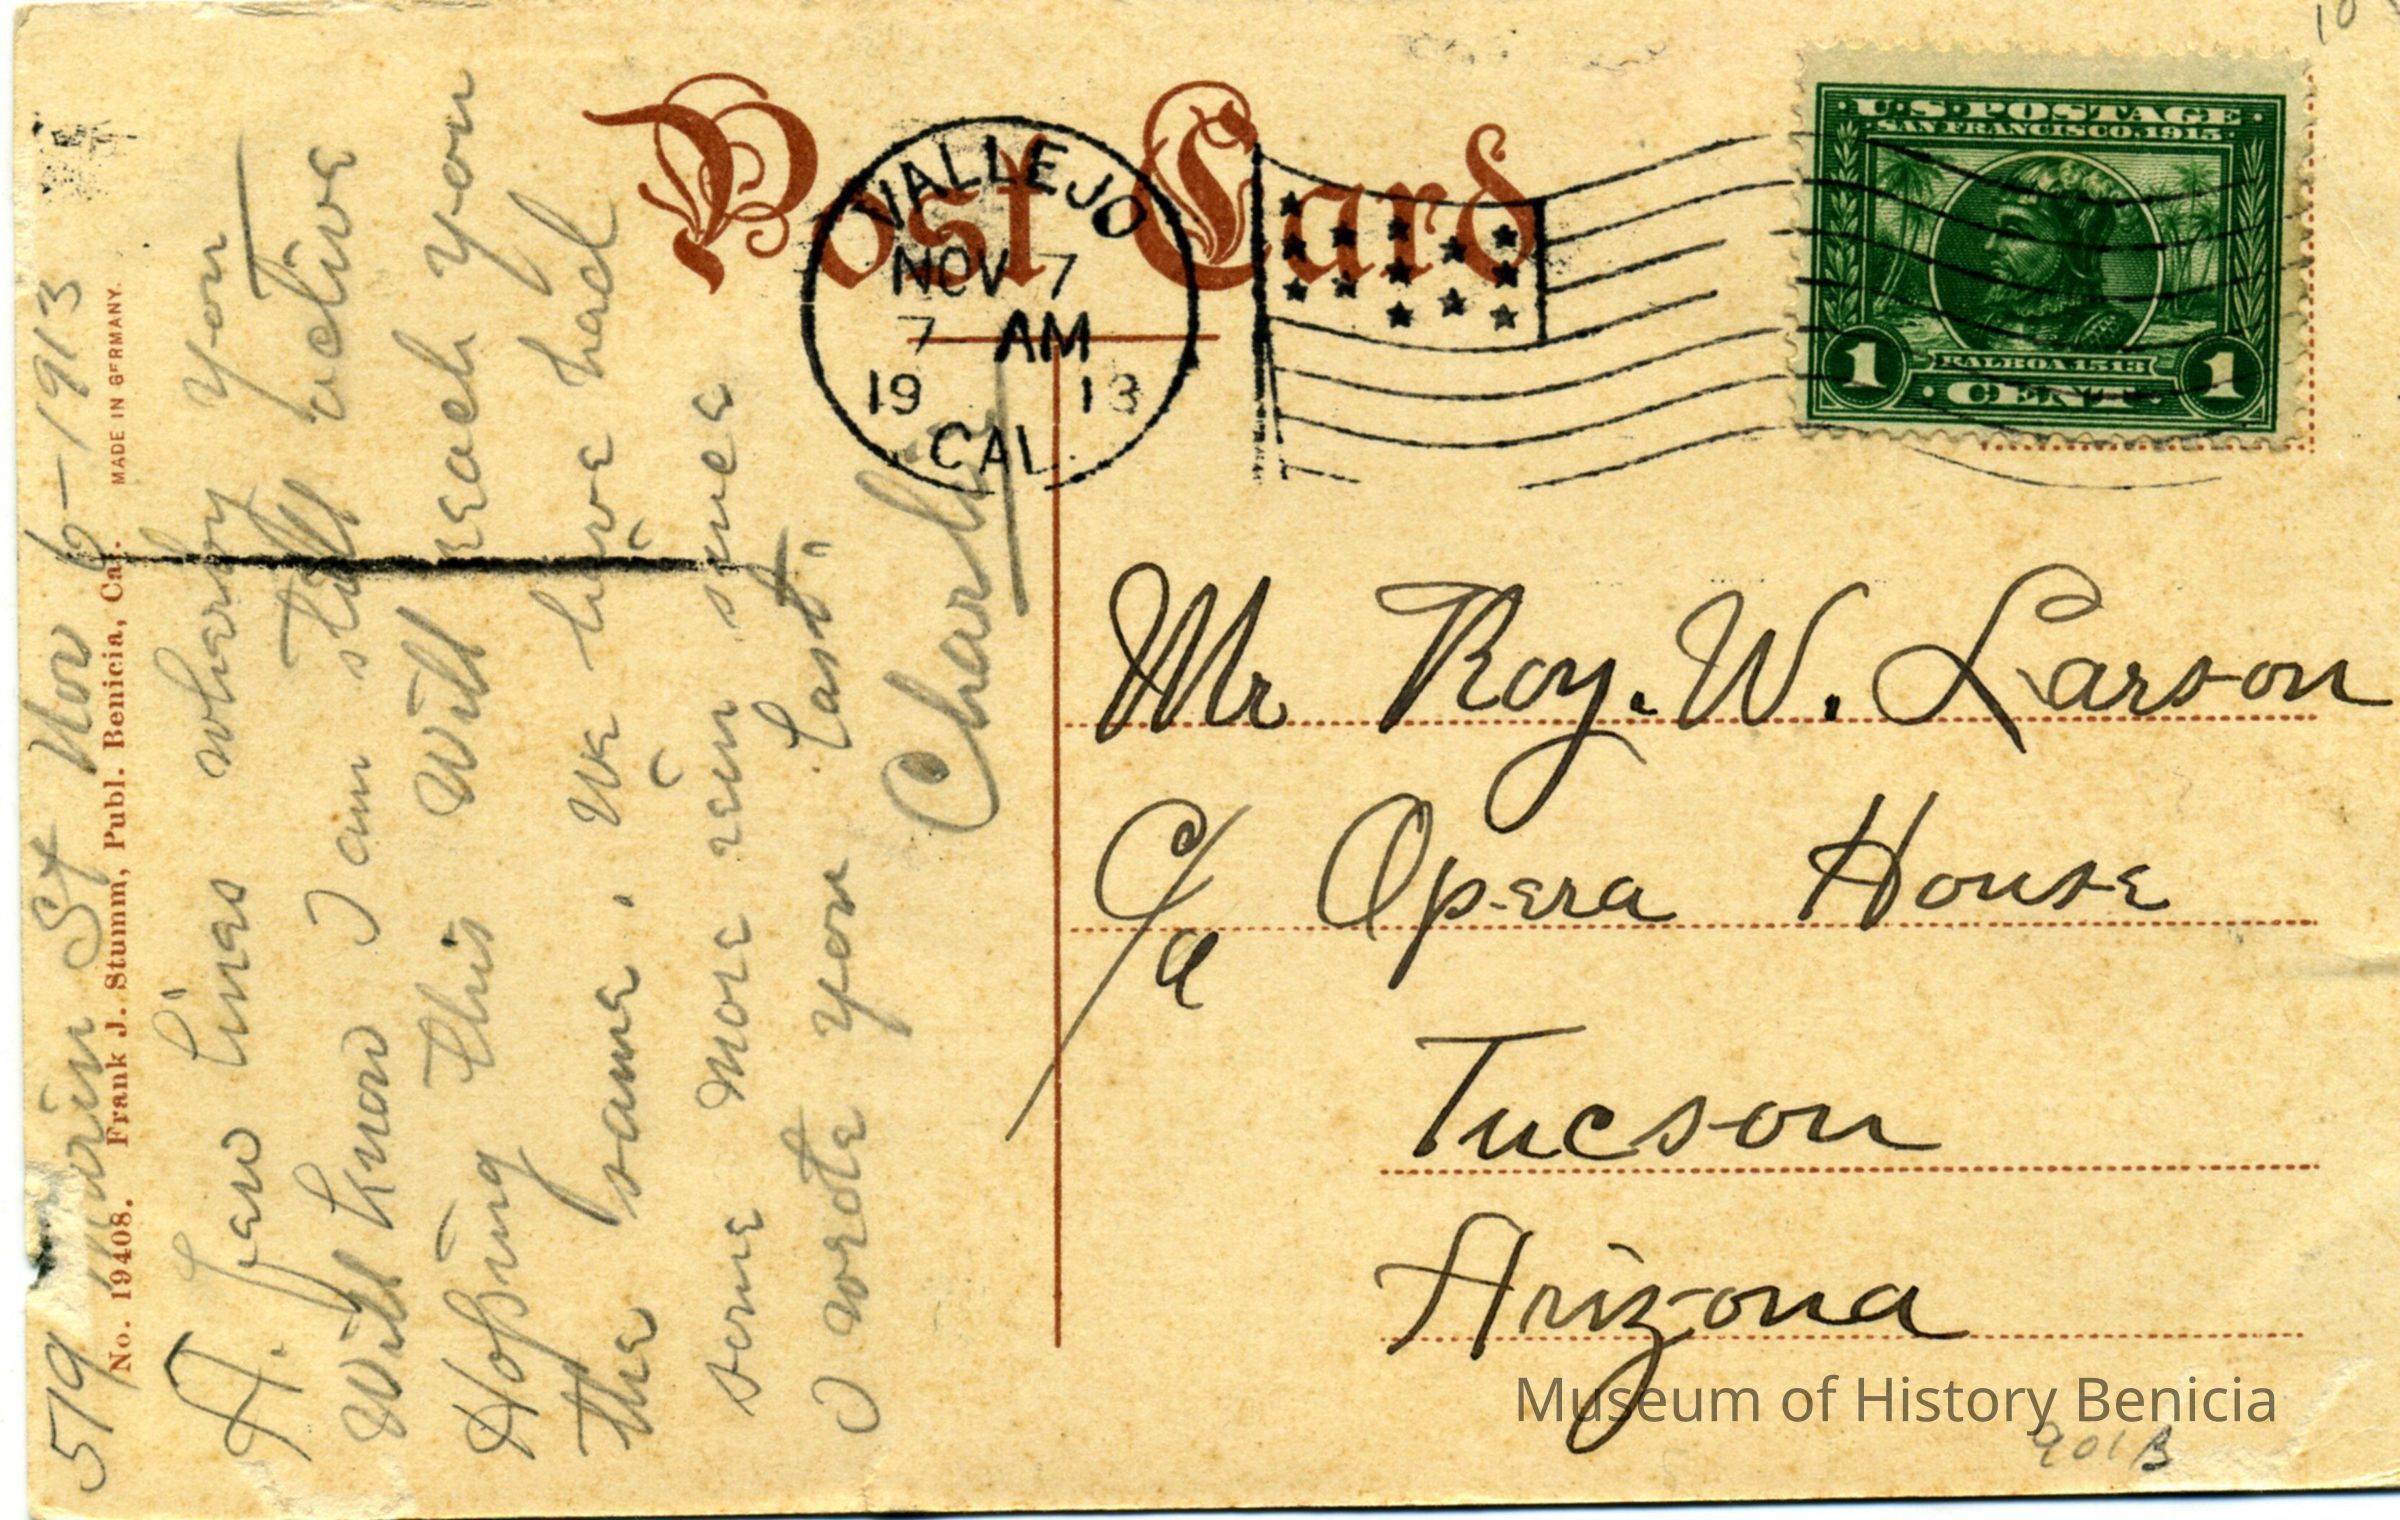 Post Card
VALLEJO
NOV 7
7 AM
19 13
CAL.
U.S. POSTAGE
SAN FRANCISCO, 1915
BALBOA 1513
1 CENT 1
519 Marin St Nov 6-1913
No. 19408. Frank J. Stumm, Publ. Benicia, Cal. MADE IN GERMANY.
A. few lines wherby you
Will know I am still active
Hoping this Will reach you
the same. We have had
some more rein since
I wrote you last.
Charlie
Mr Roy. W. Larson
C/a Opera House
Tucson
Arizona
Museum of History Benicia
901B